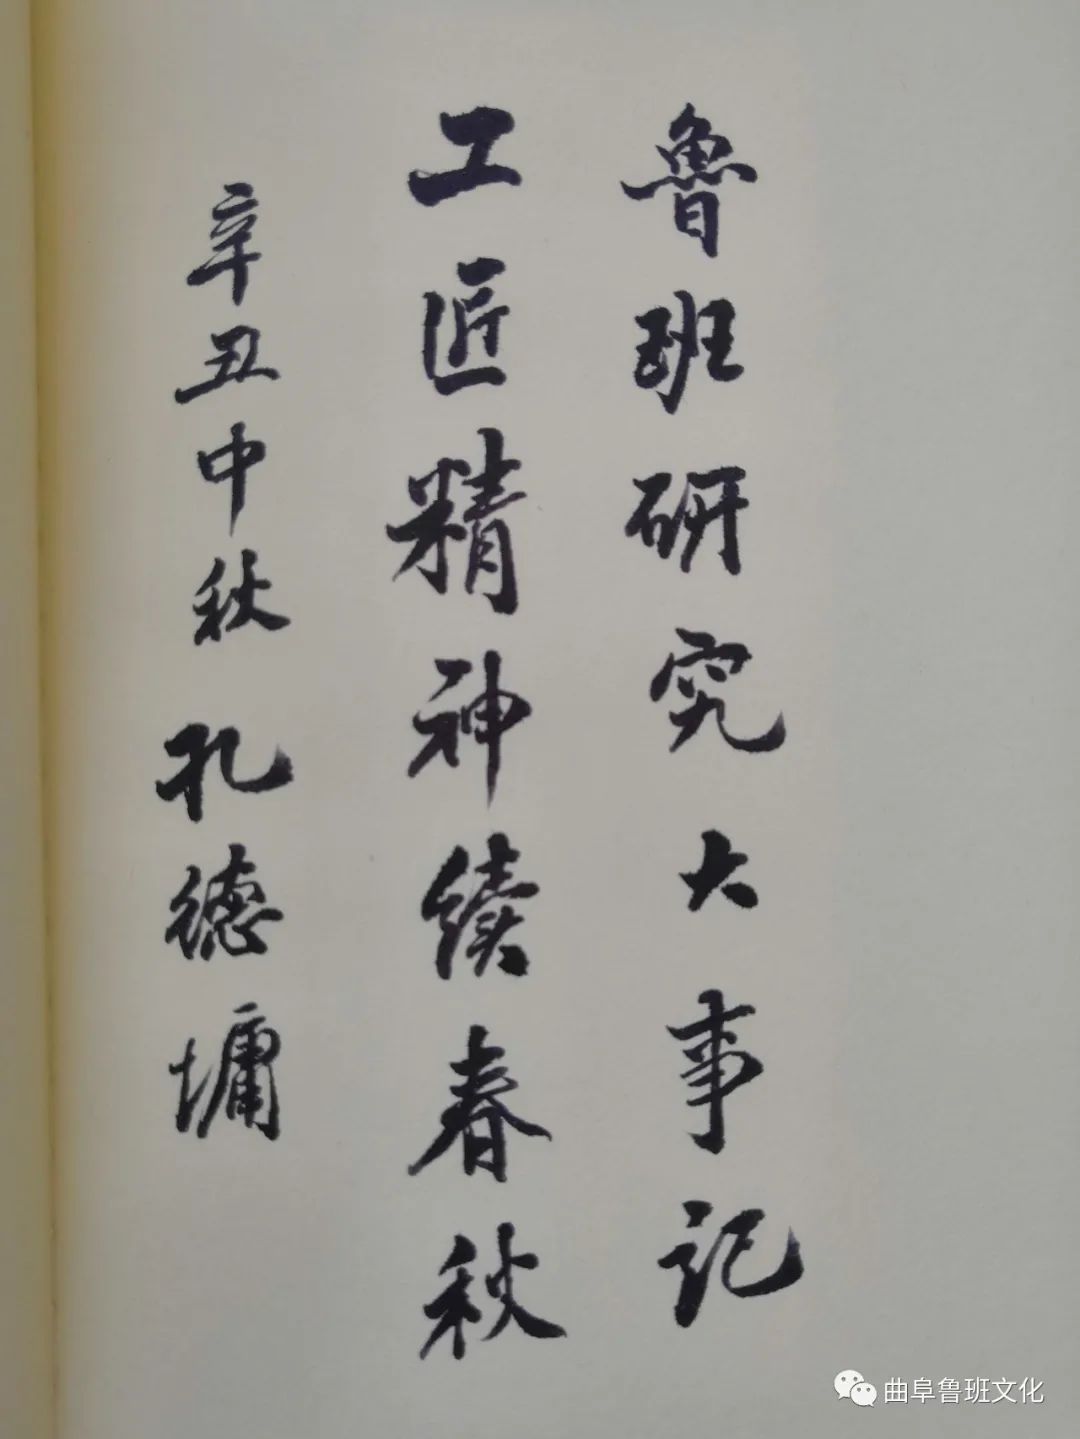 魯班研究大事记
工匠精神续春秋
辛丑中秋 孔德墉
曲阜鲁班文化